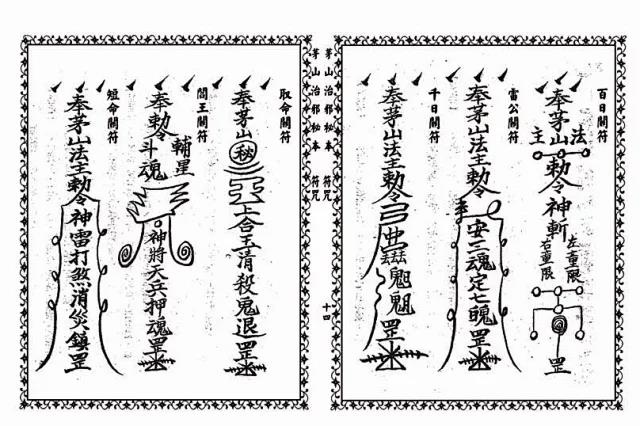 百日關符
奉茅山法主勅令神斬
左重限
右重限
罡
雷公關符
奉茅山法主勅令
安三魂定七魄罡
千日關符
奉茅山法主勅令
罡
茅山治邪秘本 符咒
十四
茅山治邪秘本 符咒
取命關符
奉茅山秘
上合玉清殺鬼退罡
閻王關符
奉勅令
輔星
斗魂
神將天兵押魂罡
短命關符
奉茅山法主勅令神雷打煞消災鎮罡